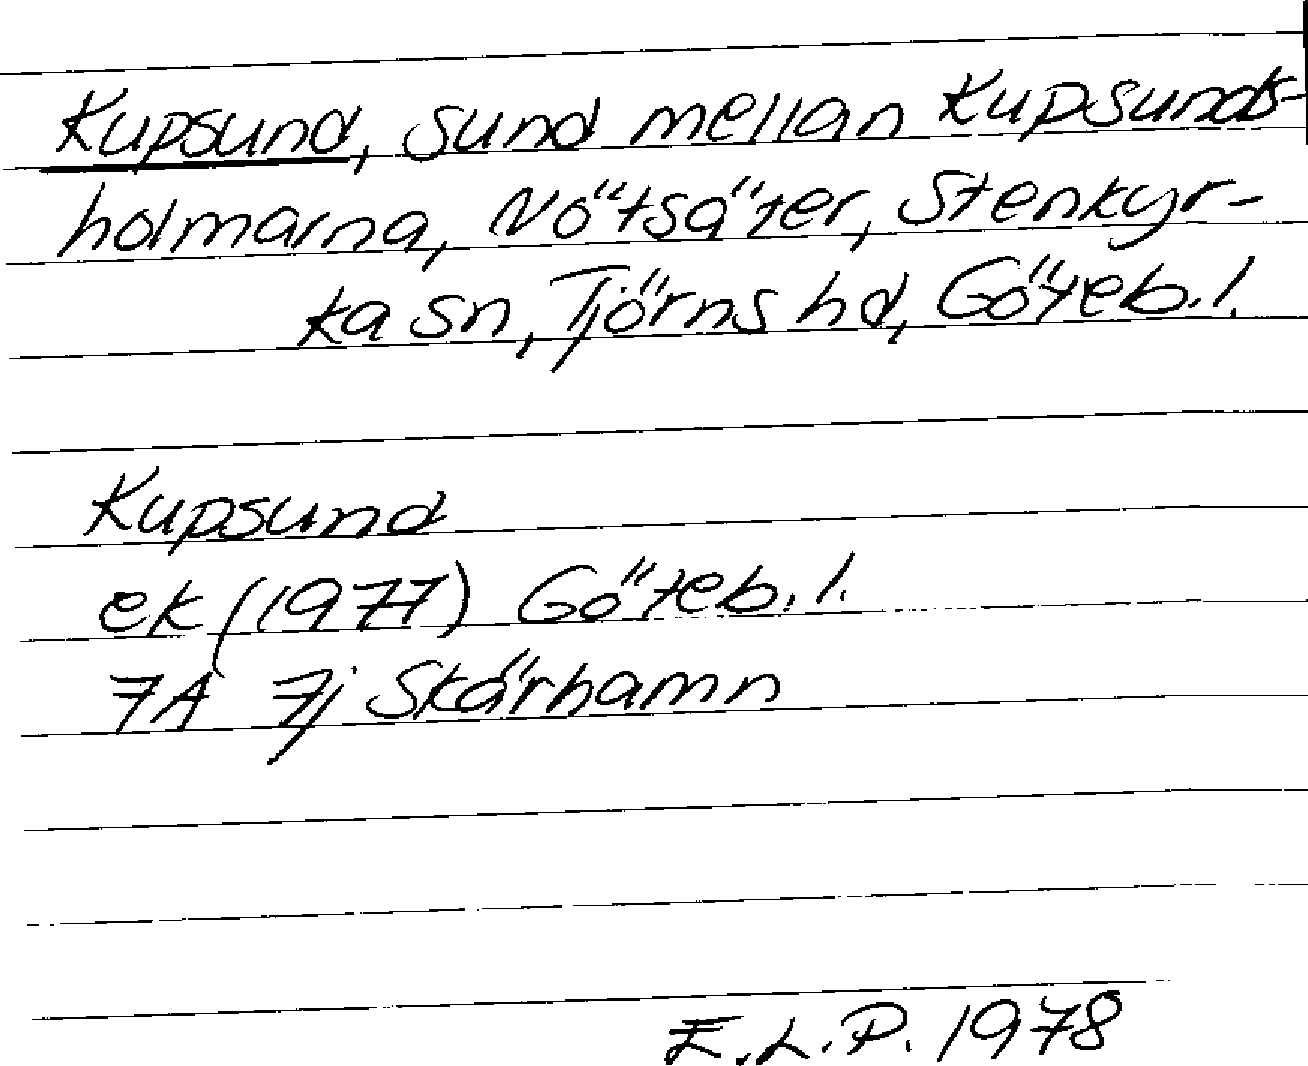 Kupsund, sund mellan Kupsunds-
holmarna, Nötsäter, Stenkyr-
ka sn, Tjörns hd, Göteb. l.
Kupsund
ek (1977) Göteb. l.
7A 7j Skärhamn
E.L.P. 1978